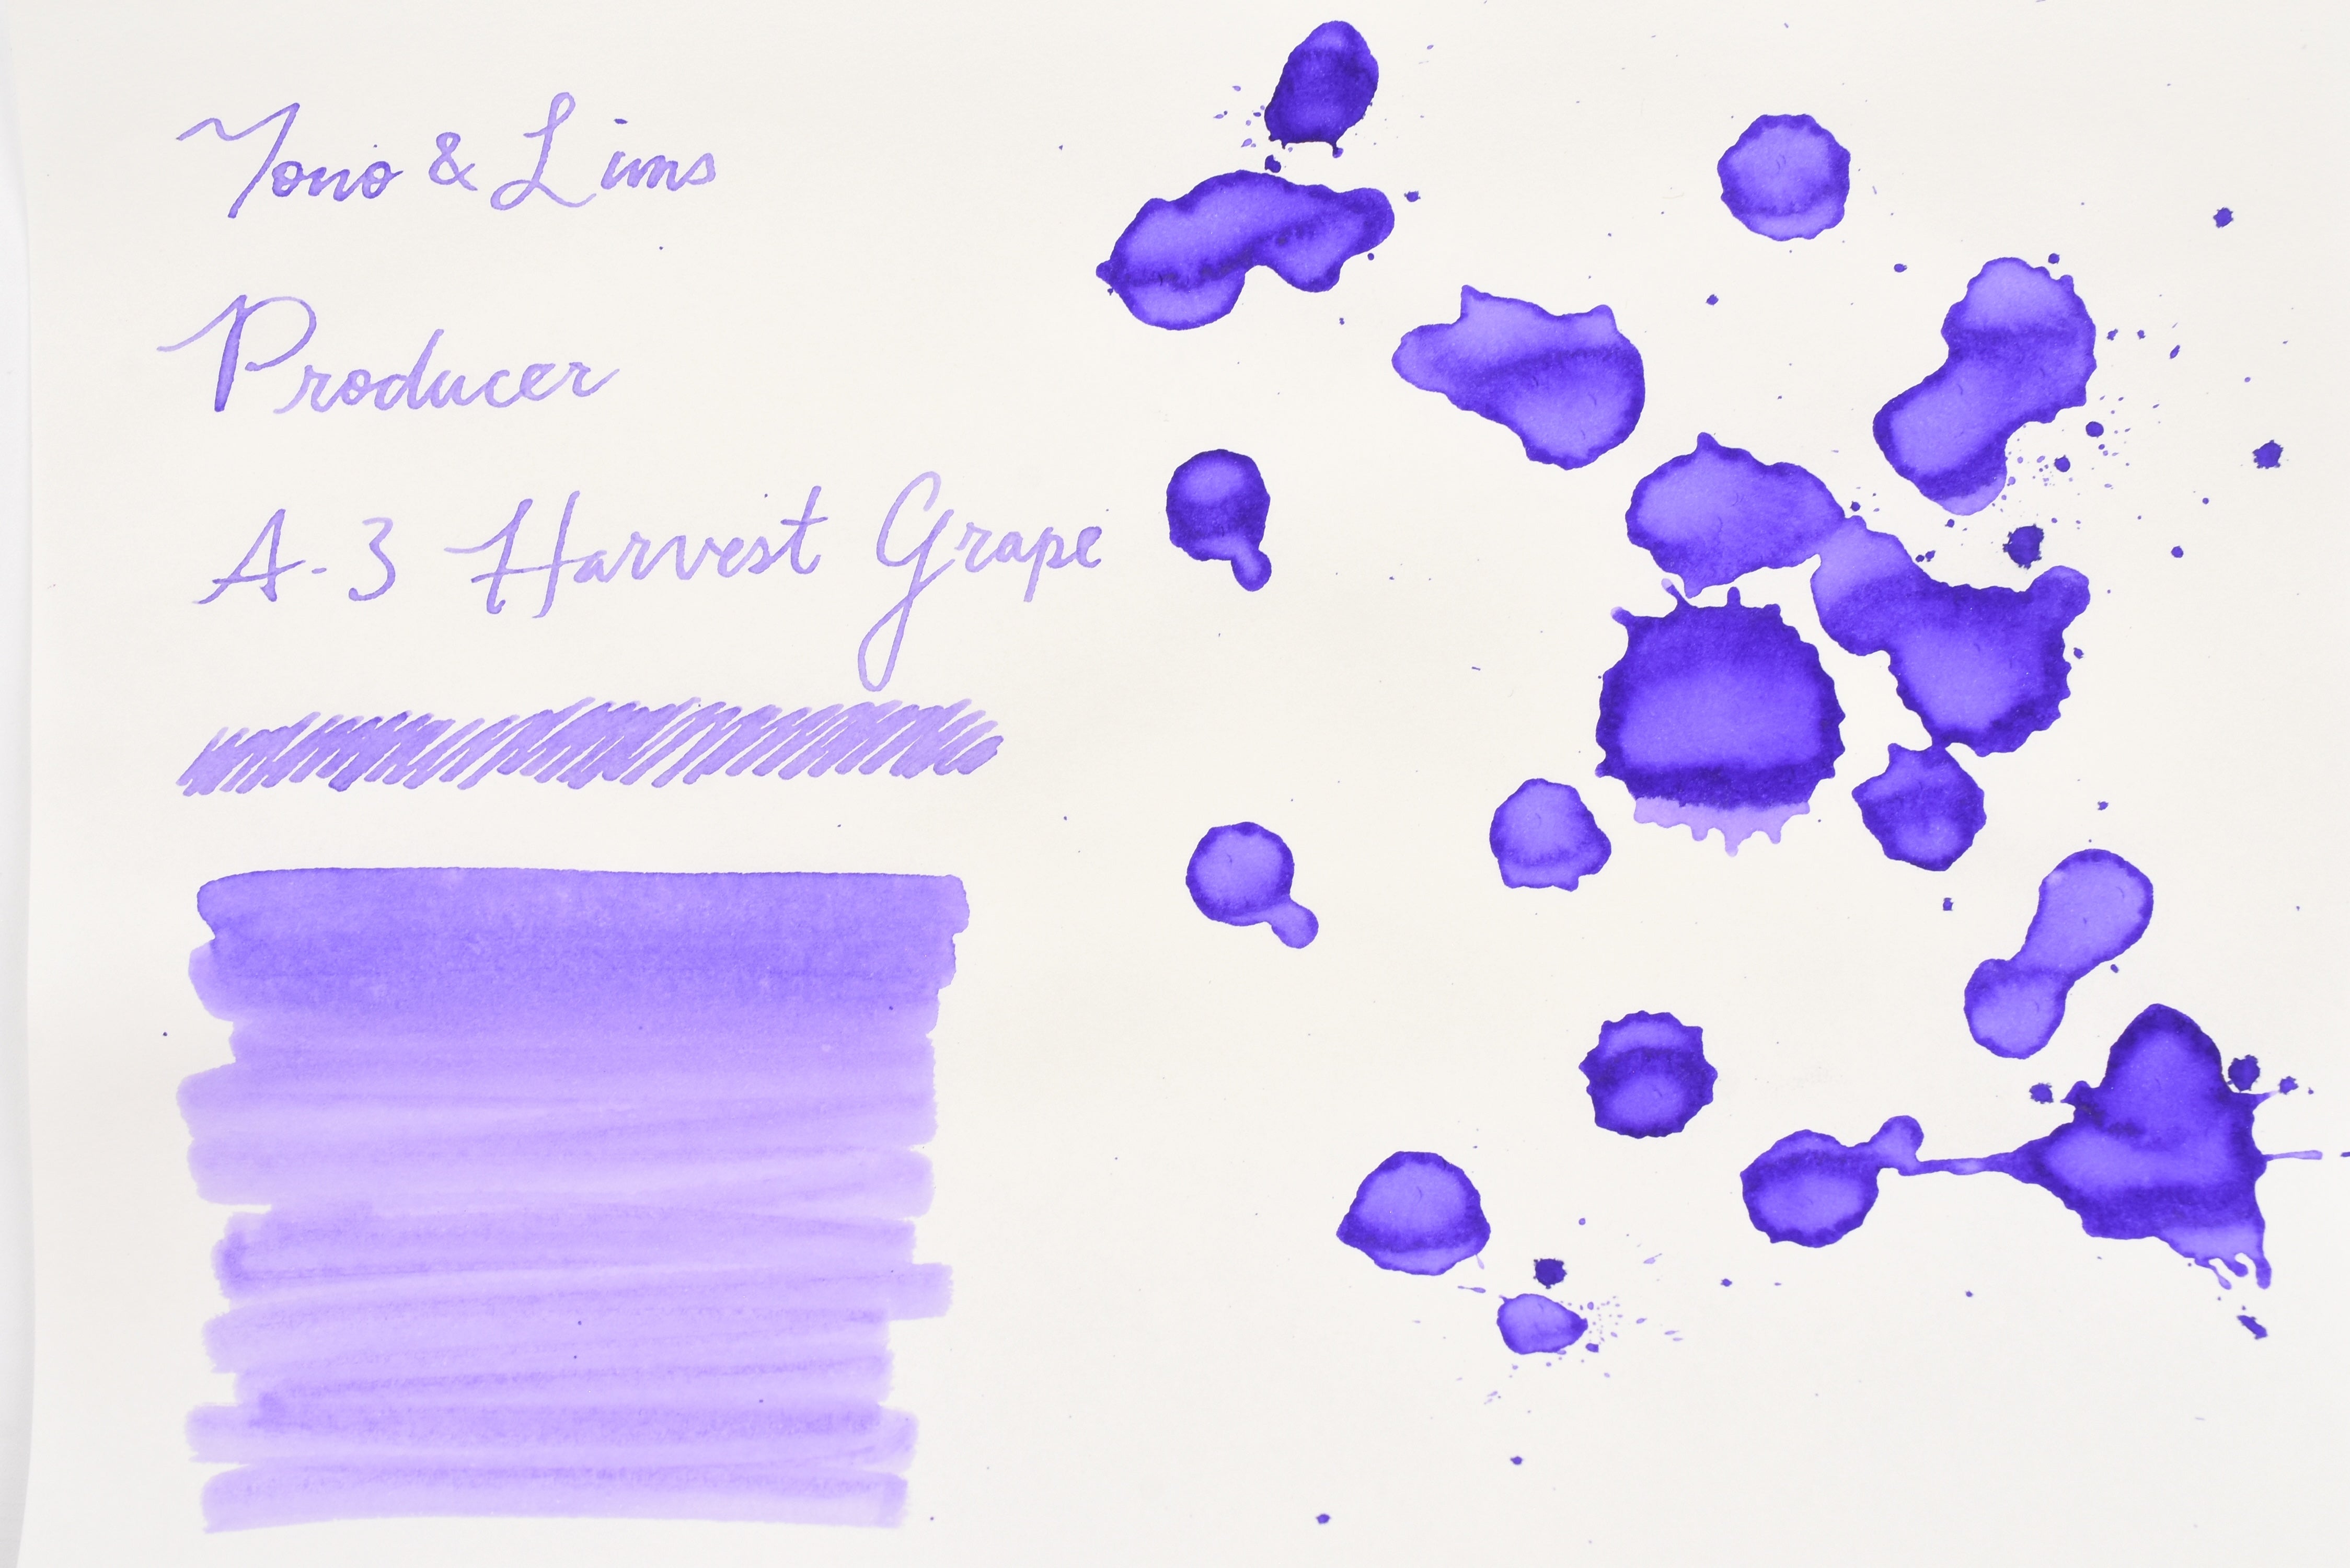 Tono & Lims
Producer
A-3 Harvest Grape